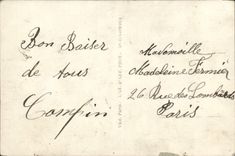 Bon Baiser
de tous
Compin
Mademoiselle
Madeleine Fermier
26 Rue des Lombards
Paris